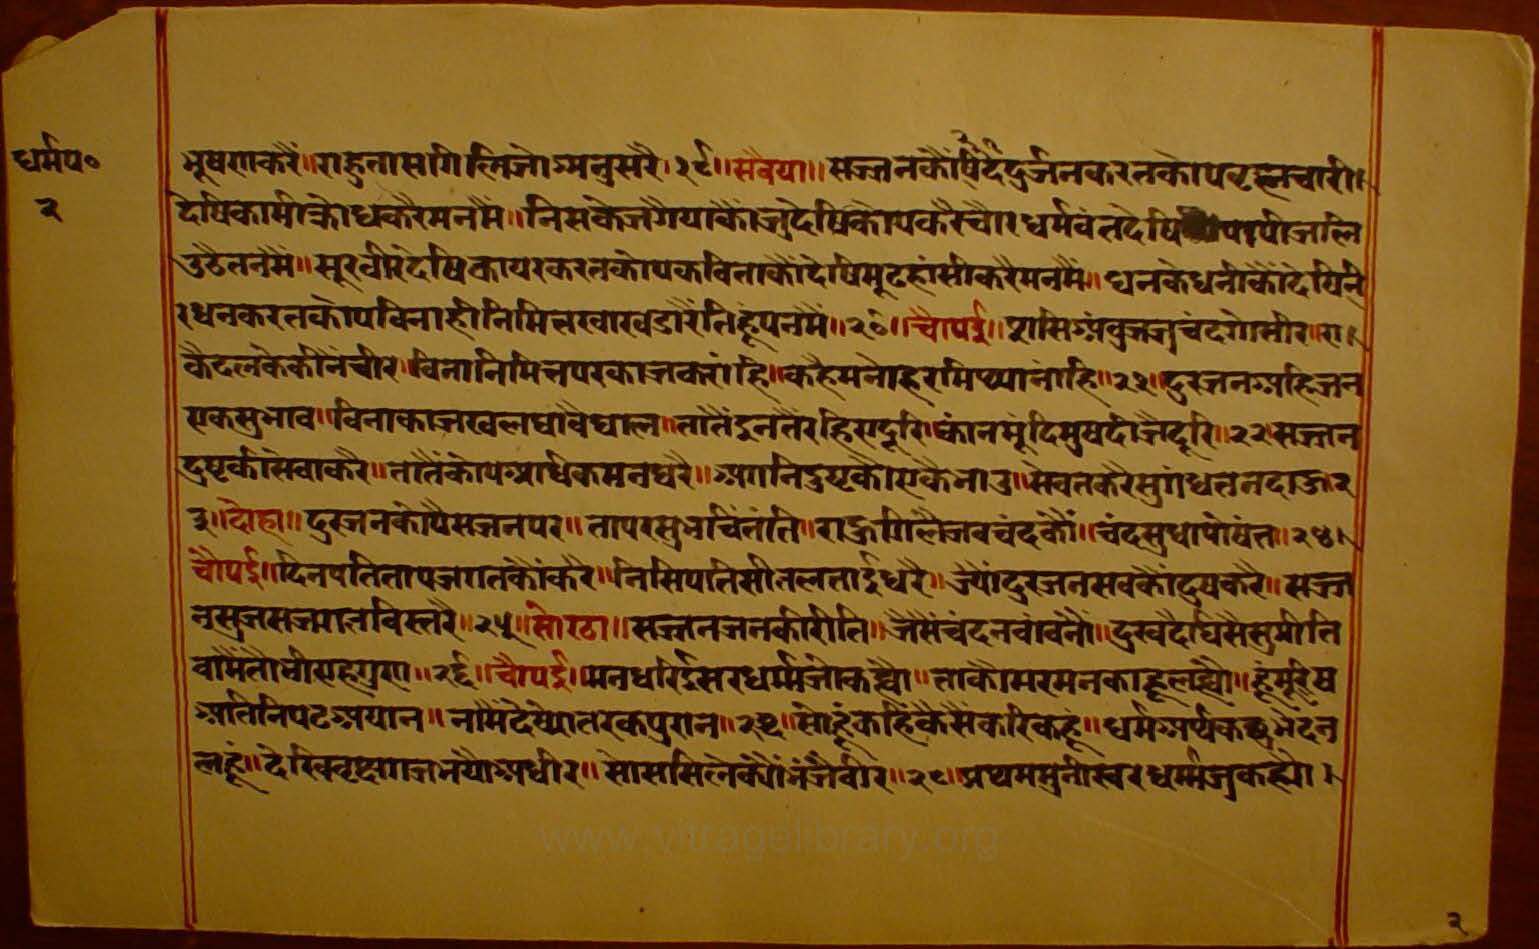 धर्मप०
२
भूषणकरैं॥राहुतासगिलिजोअनुसरै।१९॥सवैया॥सज्जनकौंदेषिदुर्जनकरतकोपब्रह्मचारी।
देषिकामीक्रोधकरैमनमैं॥निसकेजगैयाकौंजुदेषिकोपकरैचौरधर्मवंतदेषिपापीजलि
उठैतनमैं॥सूरवीरदेषिकायरकरतकोपकविताकौंदेषिमूढहांसीकरैमनमैं॥धनकेधनीकौंदेषिनि
रधनकरतकोपविनाहीनिमित्तखाखडारैंतिहूंपनमैं॥२०॥चौपई॥ससिअंबुजजुचंदगोसीर॥रा।
कैदलकेकीनंचीर॥विनानिमित्तपरकाजकरांहि॥कहैमनोहरमिथ्यानांहि॥२१॥दुरजनअहिजन
एकसुभाव॥विनाकाजखलघावैघाल॥तातैंदुनतैंरहिएदूरि॥कांनमूंदिमुषदीजैदूरि॥२२॥सज्जन
दुष्टकीसेवाकरै॥तातैंकोपअधिकमनधरै॥अगनिदुष्टकौएकैभाउ॥सेवतकरैसुगंधतनदाउ॥२
३॥दोहा॥दुरजनकोपैसजनपर॥तापरसुभचिंतंति॥राहुगिलैजवचंदकौं॥चंदसुधापोषंत॥२४।
चौपई॥दिनपतितापजगतकौंकरै॥निसिपतिसीतलताईधरै॥ज्यौंदुरजनसवकौंदुषकरै॥सज्ज
नसुजसजगतविस्तरै॥२५॥सोरठा॥सज्जनजनकीरीति॥जैसेंचंदनवांवनौं॥दुखदैघिसैसुमीति
वामैंतौभीएहगुण॥२६॥चौपई॥मनधरिईसरधर्म्मजोकह्यौ॥ताकौमरमनकाहूलह्यौ॥हूंमूरिष
अतिनिपटअयान॥नामैंदेष्योतरकपुरान॥२७॥सोहूंकहिकैसैंकरिकहूं॥धर्मअर्थकछुभेदन
लहूं॥देखिवृक्षगजभयौअधीर॥सोससिलेक्यौंभंजैवीर॥२८॥प्रथममुनीस्वरधर्म्मजुकह्यो।
२
www.vitragelibrary.org